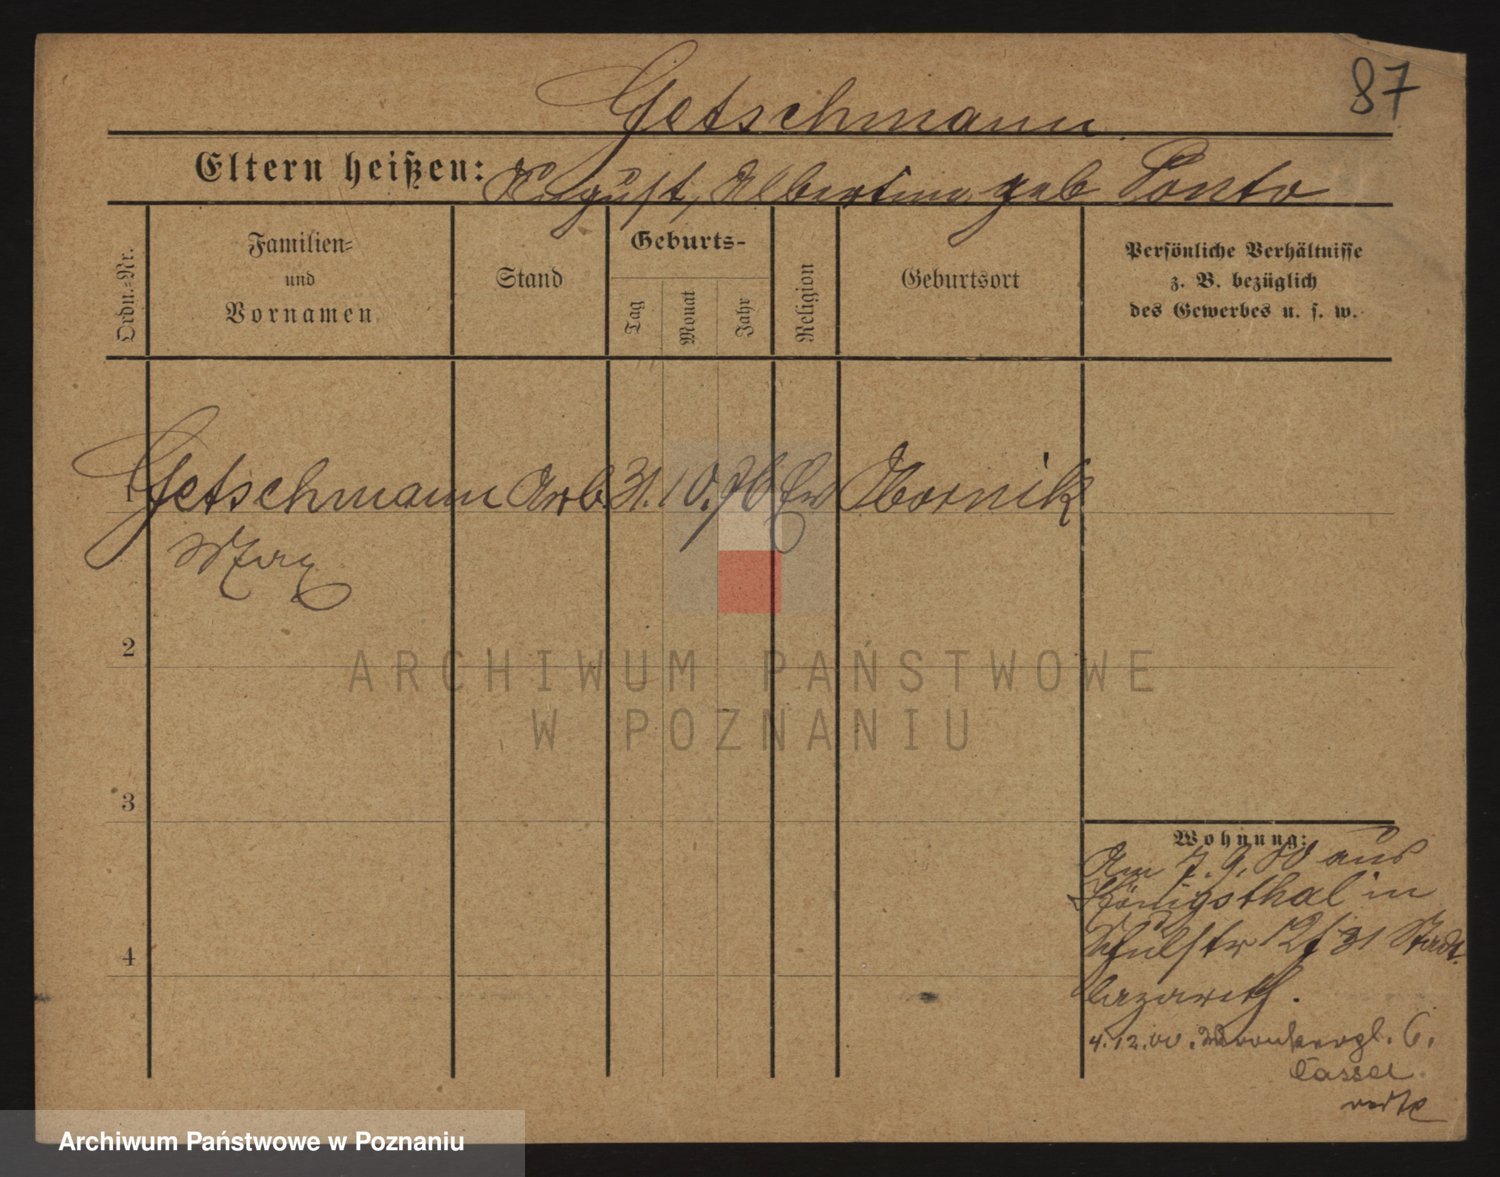 87
Getschmann
Eltern heißen: August, Albertine geb Ponto
Ordn.-Nr.
Familien-
und
Vornamen
Stand
Geburts-
Tag
Monat
Jahr
Religion
Geburtsort
Persönliche Verhältnisse
z. B. bezüglich
des Gewerbes u. s. w.
1 Getschmann Arb. 31. 10. 76 Ev Kornik
Max
2
ARCHIWUM PAŃSTWOWE
W POZNANIU
3
4
Wohnung:
Am 7. 9. 00 aus
Königsthal in
Schulstr 12 Stadt
lazareth.
4. 12. 00. 6.
Cassel
Archiwum Państwowe w Poznaniu